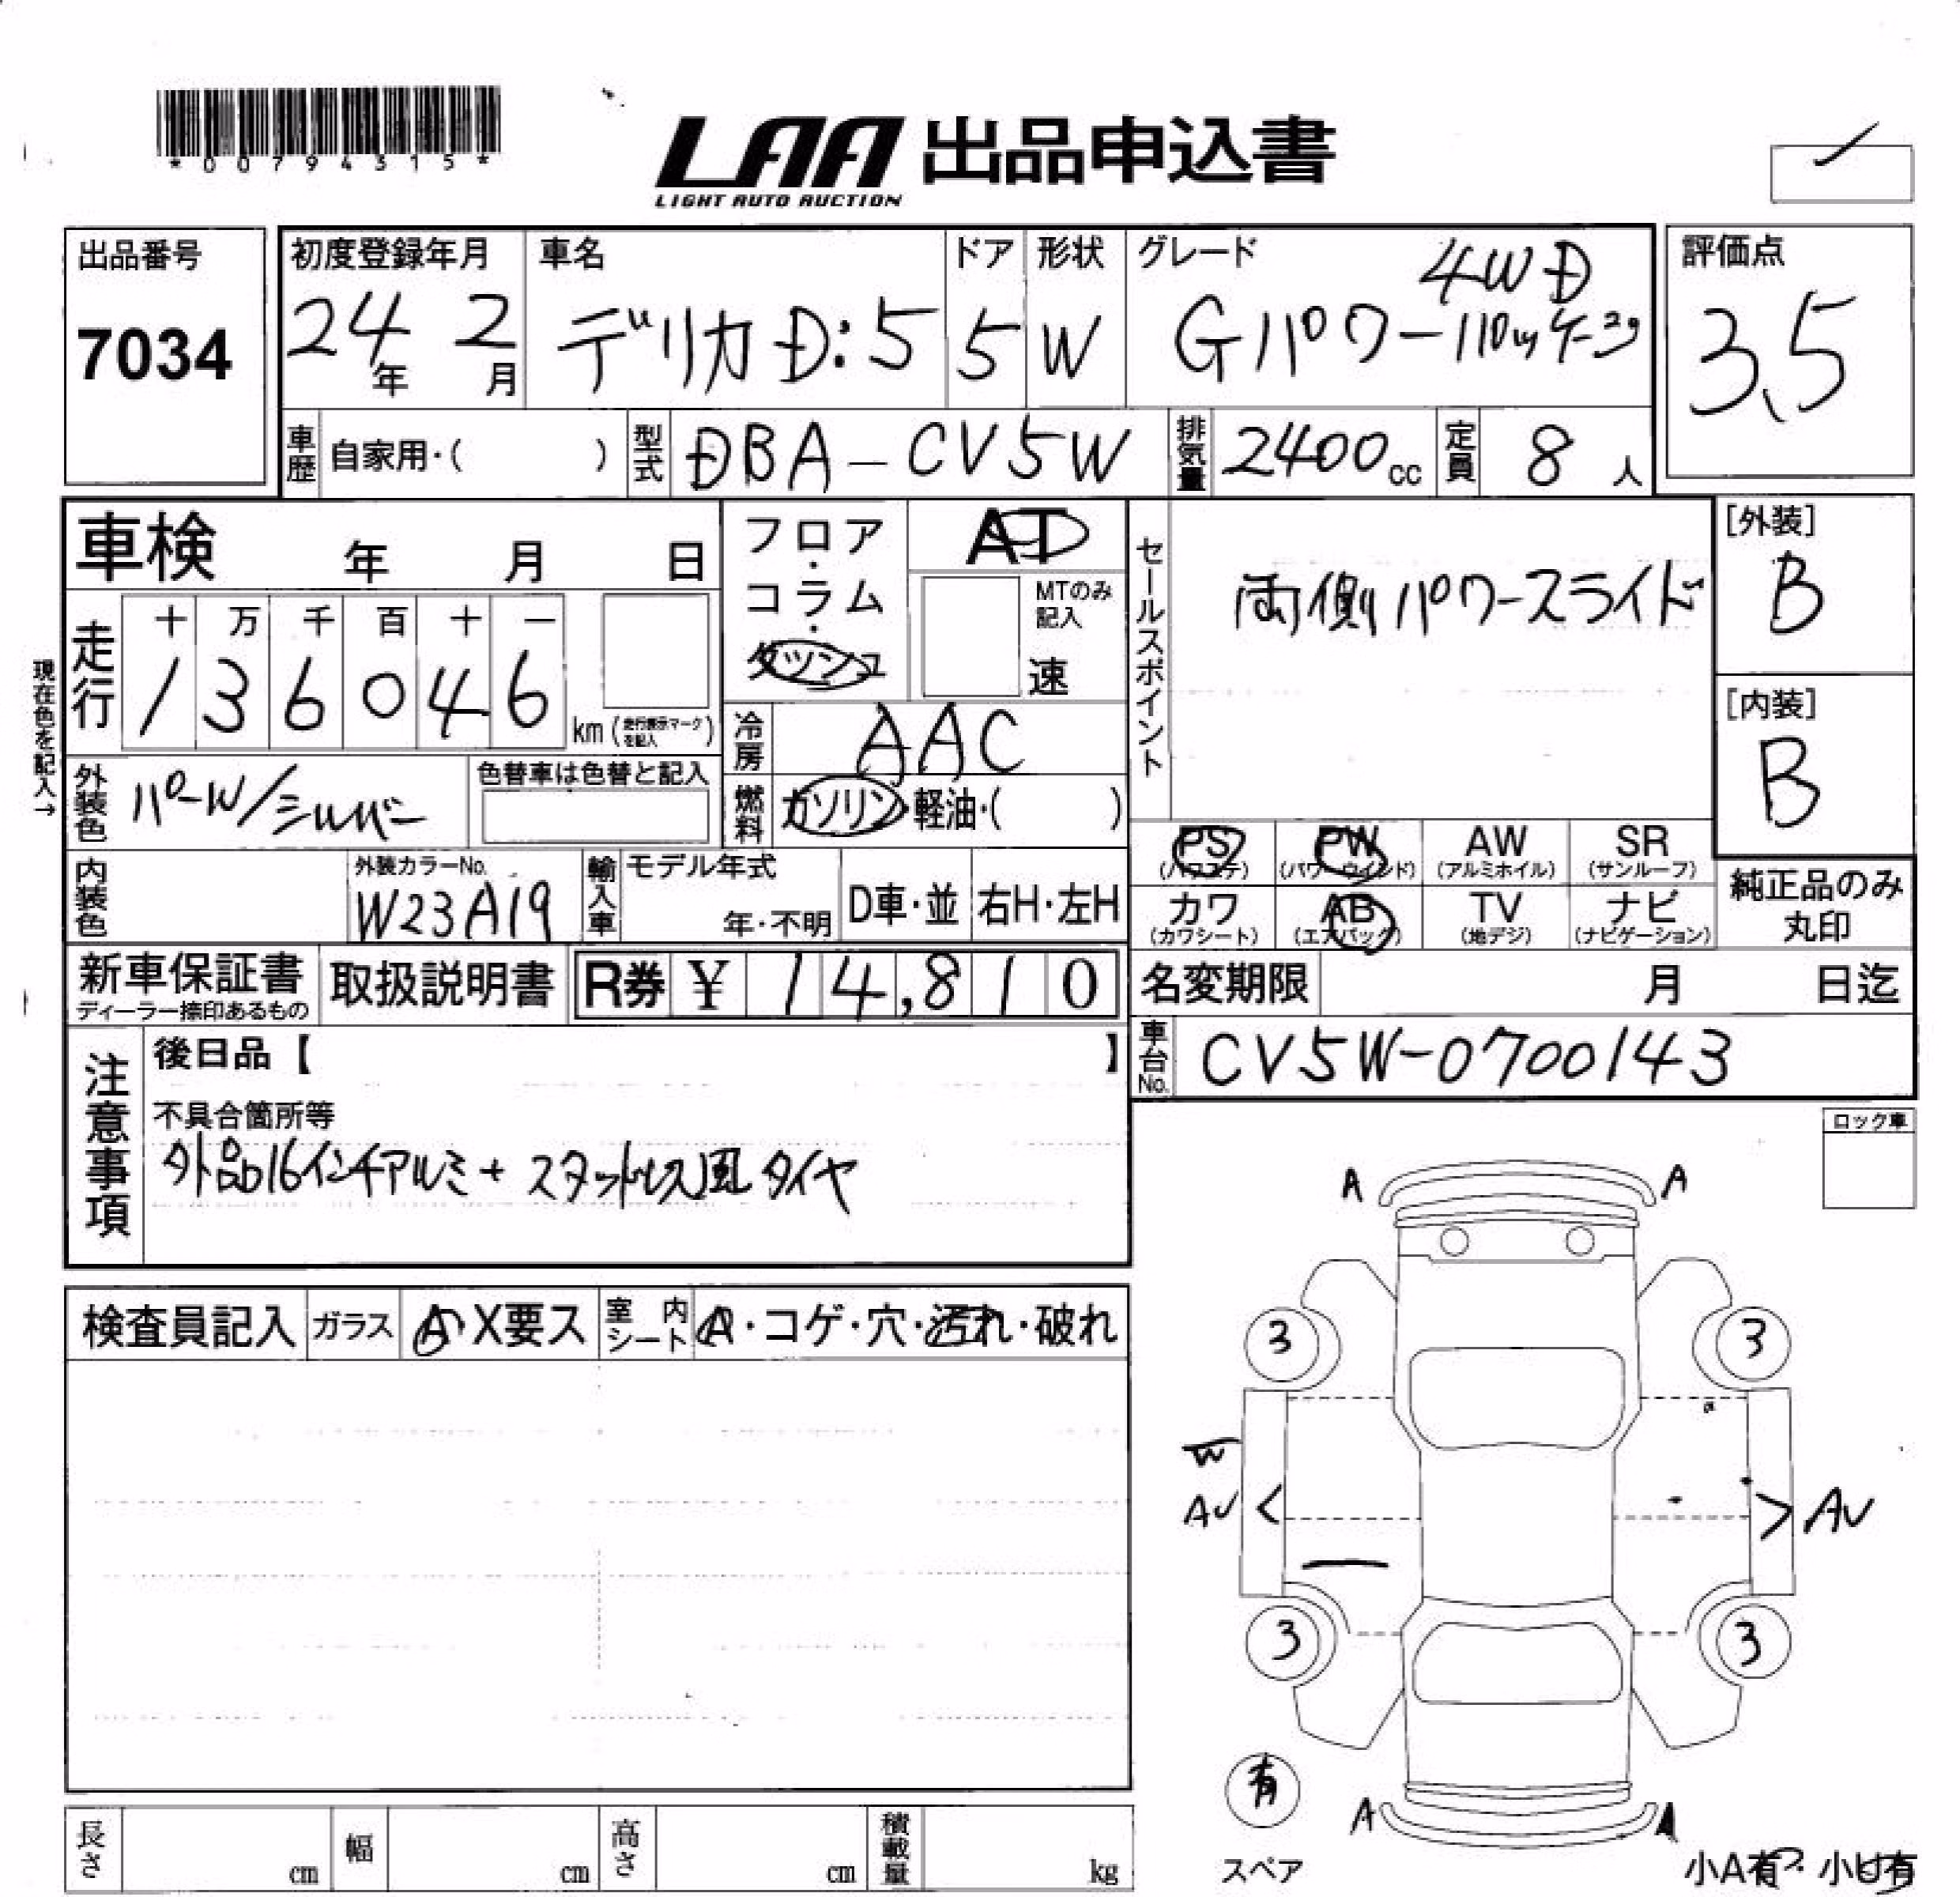 *00794315*
LAA 出品申込書
LIGHT AUTO AUCTION
出品番号
7034
初度登録年月
24年 2月
車名
デリカD:5
ドア
5
形状
W
グレード
4WD
Gパワーパッケージ
評価点
3.5
車歴 自家用・( )
型式 DBA-CV5W
排気量 2400cc
定員 8人
車検 年 月 日
フロア・コラム・ダッシュ
AT
MTのみ記入
速
セールスポイント
両側パワースライド
[外装]
B
[内装]
B
現在色を記入→
走行
十 万 千 百 十 一
1 3 6 0 4 6 km (走行表示マークを記入)
冷房 AAC
外装色 パールW/シルバー
色替車は色替と記入
燃料 ガソリン・軽油・( )
PS (パワステ)
PW (パワーウインド)
AW (アルミホイル)
SR (サンルーフ)
内装色
外装カラーNo.
W23A19
輸入車
モデル年式
年・不明
D車・並
右H・左H
カワ (カワシート)
AB (エアバック)
TV (地デジ)
ナビ (ナビゲーション)
純正品のみ丸印
新車保証書
ディーラー捺印あるもの
取扱説明書
R券 ¥ 14,810
名変期限 月 日迄
車台No. CV5W-0700143
注意事項
後日品【 】
不具合箇所等
外品16インチアルミ+スタッドレス風タイヤ
ロック車
検査員記入
ガラス
A・X要ス
室内シート
A・コゲ・穴・汚れ・破れ
A A
3 3
W
AU < > AU
3 3
有
スペア
A A
小A有・小U有
長さ cm
幅 cm
高さ cm
積載量 kg